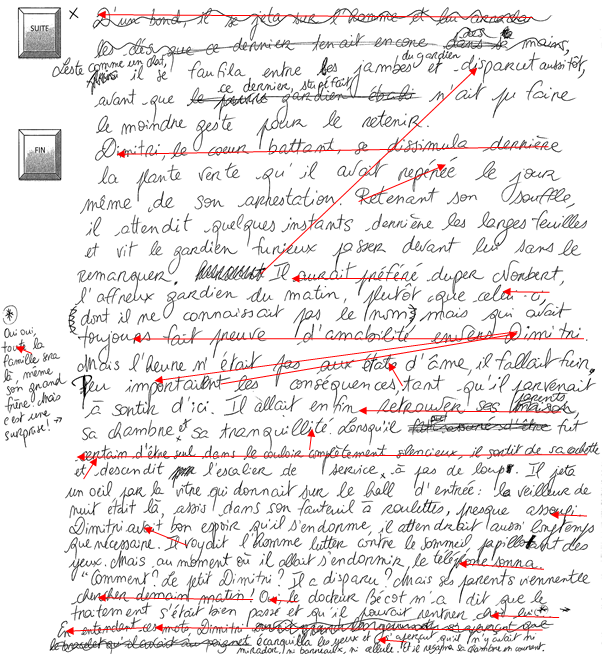 SUITE
x D'un bond, il se jeta sur l'homme et lui arracha
les dés que ce dernier tenait encore dans ses mains,
Leste comme un chat, il se faufila, entre les jambes du gardien et disparut aussitôt,
avant que ce dernier, stupéfait n'ait pu faire
le moindre geste pour le retenir.
FIN
Dimitri, le coeur battant, se dissimula derrière
la plante verte qu'il avait repérée le jour
même de son arrestation. Retenant son souffle,
il attendit quelques instants derrière les larges feuilles
et vit le gardien furieux passer devant lui sans le
remarquer. Il aurait préféré duper Norbert,
l'affreux gardien du matin, plutôt que celui-ci,
(dont il ne connaissait pas le nom) mais qui avait
toujours fait preuve d'amabilité envers Dimitri.
Mais l'heure n'était pas aux états d'âme, il fallait fuir,
Peu importaient les conséquences tant qu'il parvenait
à sortir d'ici. Il allait enfin retrouver ses parents,
sa chambre et sa tranquillité. Lorsqu'il fut
certain d'être seul dans le couloir complètement silencieux, il sortit de sa cachette
et descendit l'escalier de service, à pas de loup. Il jeta
un oeil par la vitre qui donnait sur le hall d'entrée : le veilleur de
nuit était là, assis dans son fauteuil à roulettes, presque assoupi.
Dimitri avait bon espoir qu'il s'endorme, il attendrait aussi longtemps
que nécessaire. Il voyait l'homme lutter contre le sommeil, papillotant des
yeux. Mais au moment où il allait s'endormir, le téléphone sonna.
"Comment ? Le petit Dimitri ? Il a disparu ? Mais ses parents viennent le
chercher demain matin ! Oui, le docteur Bécot m'a dit que le
traitement s'était bien passé et qu'il pouvait rentrer chez lui * "
En entendant ces mots, Dimitri
écarquilla les yeux et s'aperçut qu'il n'y avait ni
mirador, ni barreaux, ni cellule. Et il regagna sa chambre en courant.
*
Oui oui,
toute la
famille sera
là même
son grand
frère. Mais
c'est une
surprise ! →